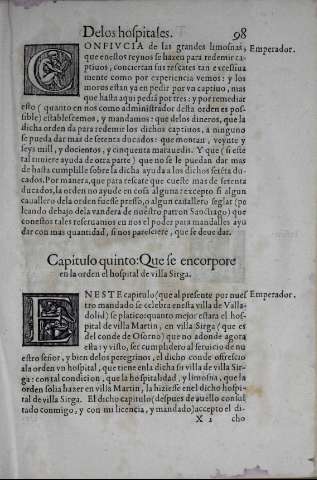 De los hospitales. 98
CONFIVCIA de las grandes limosnas, Emperador.
que en estos reynos se hazen para redemir cap
tiuos, conciertan sus rescates tan excessiua
mente como por experiencia vemos: y los
moros estan ya en pedir por vn captiuo, mas
que hasta aqui pediá por tres: y por remediar
esto (quanto en nos como administrador desta orden es pos-
sible) establescemos, y mandamos: que delos dineros, que la
dicha orden da para redemir los dichos captiuos, a ninguno
se pueda dar mas de setenta ducados: que montan, veynte y
seys mill, y dosientos, y cinquenta marauedis. Y que (si este
tal tuuiere ayuda de otra parte) que no se le puedan dar mas
de hasta cumplille sobre la dicha ayuda a los dichos setéta du-
cados. Por manera, que para rescate que cueste mas de setenta
ducados, la orden no ayude en cosa alguna: excepto si algun
cauallero dela orden fuesse presso, o algun cauallero seglar (pe
leando debajo dela vandera de nuestro patron Sanctiago) que
con estos tales reseruamos en nos el poder para mandalles ayu
dar con mas quantidad, si nos paresciere, que se deue dar.
Capitulo quinto: Que se encorpore
en la orden el hospital de villa Sirga.
EN ESTE capitulo (que al presente por nues Emperador.
tro mandado se celebra en esta villa de Valla-
dolid) se platico: quanto mejor estara el hos-
pital de villa Martin, en villa Sirga (que es
del conde de Osorno) que no adonde agora
esta: y visto, ser cumplidero al seruicio de nu
estro señor, y bien delos peregrinos, el dicho conde offrescio
ala orden vn hospital, que tiene enla dicha su villa de villa Sir-
ga: con tal condicion, que la hospitalidad, y limosna, que la
orden solia hazer en villa Martin, la hiziesse enel dicho hospi-
tal de villa Sirga. El dicho capitulo (despues de auello consul
tado conmigo, y con mi licencia, y mandado) accepto el di-
X 2 cho